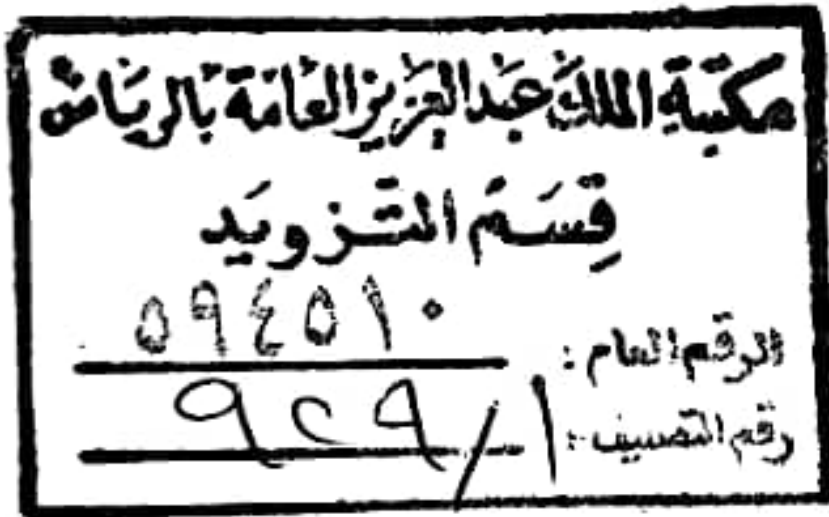 مكتبة الملك عبدالعزيز العامة بالرياض
قسم التزويد
الرقم العام: ٥٩٤٥١٠
رقم التصنيف: ٩٢٩/١